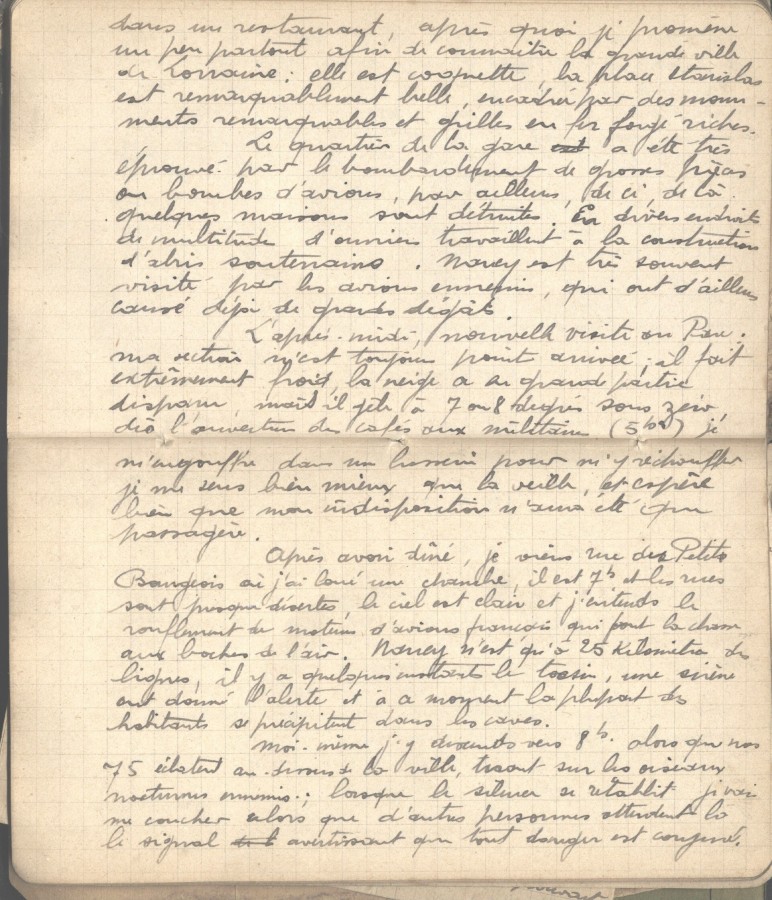 dans un restaurant, après quoi je promène
un peu partout afin de connaitre la grande ville
de Lorraine : elle est coquette, la place Stanislas
est remarquablement belle, encadrée par des monu-
ments remarquables et grilles en fer forgé riches.
Le quartier de la gare est a été très
éprouvé par le bombardement de grosses pièces
ou bombes d'avions, par ailleurs, de ci, de là
quelques maisons sont détruites. En divers endroits
de multitude d'ouvriers travaillent à la construction
d'abris souterrains. Nancy est très souvent
visité par les avions ennemis, qui ont d'ailleurs
causé déjà de grands dégâts.
L'après-midi, nouvelle visite au Parc.
ma section n'est toujours point arrivée ; il fait
extrêmement froid, la neige a en grande partie
disparu, mais il gèle à 7 ou 8 degrés sous zéro,
dès l'ouverture des cafés aux militaires (5h) je
m'engouffre dans un pour m'y réchauffer
je me sens bien mieux que la veille, et espère
bien que mon indisposition n'aura été que
passagère.
Après avoir dîné, je viens rue des Petits
Bourgeois où j'ai loué une chambre, il est 7h et les rues
sont presque désertes, le ciel est clair et j'entends le
ronflement de moteurs d'avions français qui font la chasse
aux boches de l'air. Nancy n'est qu'à 25 kilomètres des
lignes, il y a quelques instants le tocsin, une sirène
ont donné l'alerte et à ce moment la plupart des
habitants se précipitent dans les caves.
Moi-même j'y descends vers 8h. alors que nos
75 éclatent au-dessus de la ville, tirant sur les oiseaux
nocturnes ennemis ; lorsque le silence se rétablit je vais
me coucher alors que d'autres personnes attendent là
le signal avertissant que tout danger est conjuré.